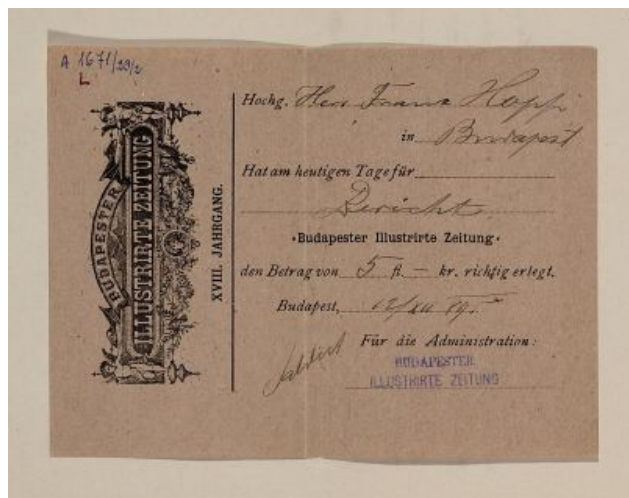 A 1671/29/2
L
BUDAPESTER
ILLUSTRIRTE ZEITUNG
XVIII. JAHRGANG.
Hochg. Herr Franz Hopp
in Budapest
Hat am heutigen Tage für
Bericht
•Budapester Illustrirte Zeitung•
den Betrag von 5 fl. — kr. richtig erlegt.
Budapest, 12/XII 89.
Für die Administration:
BUDAPESTER
ILLUSTRIRTE ZEITUNG